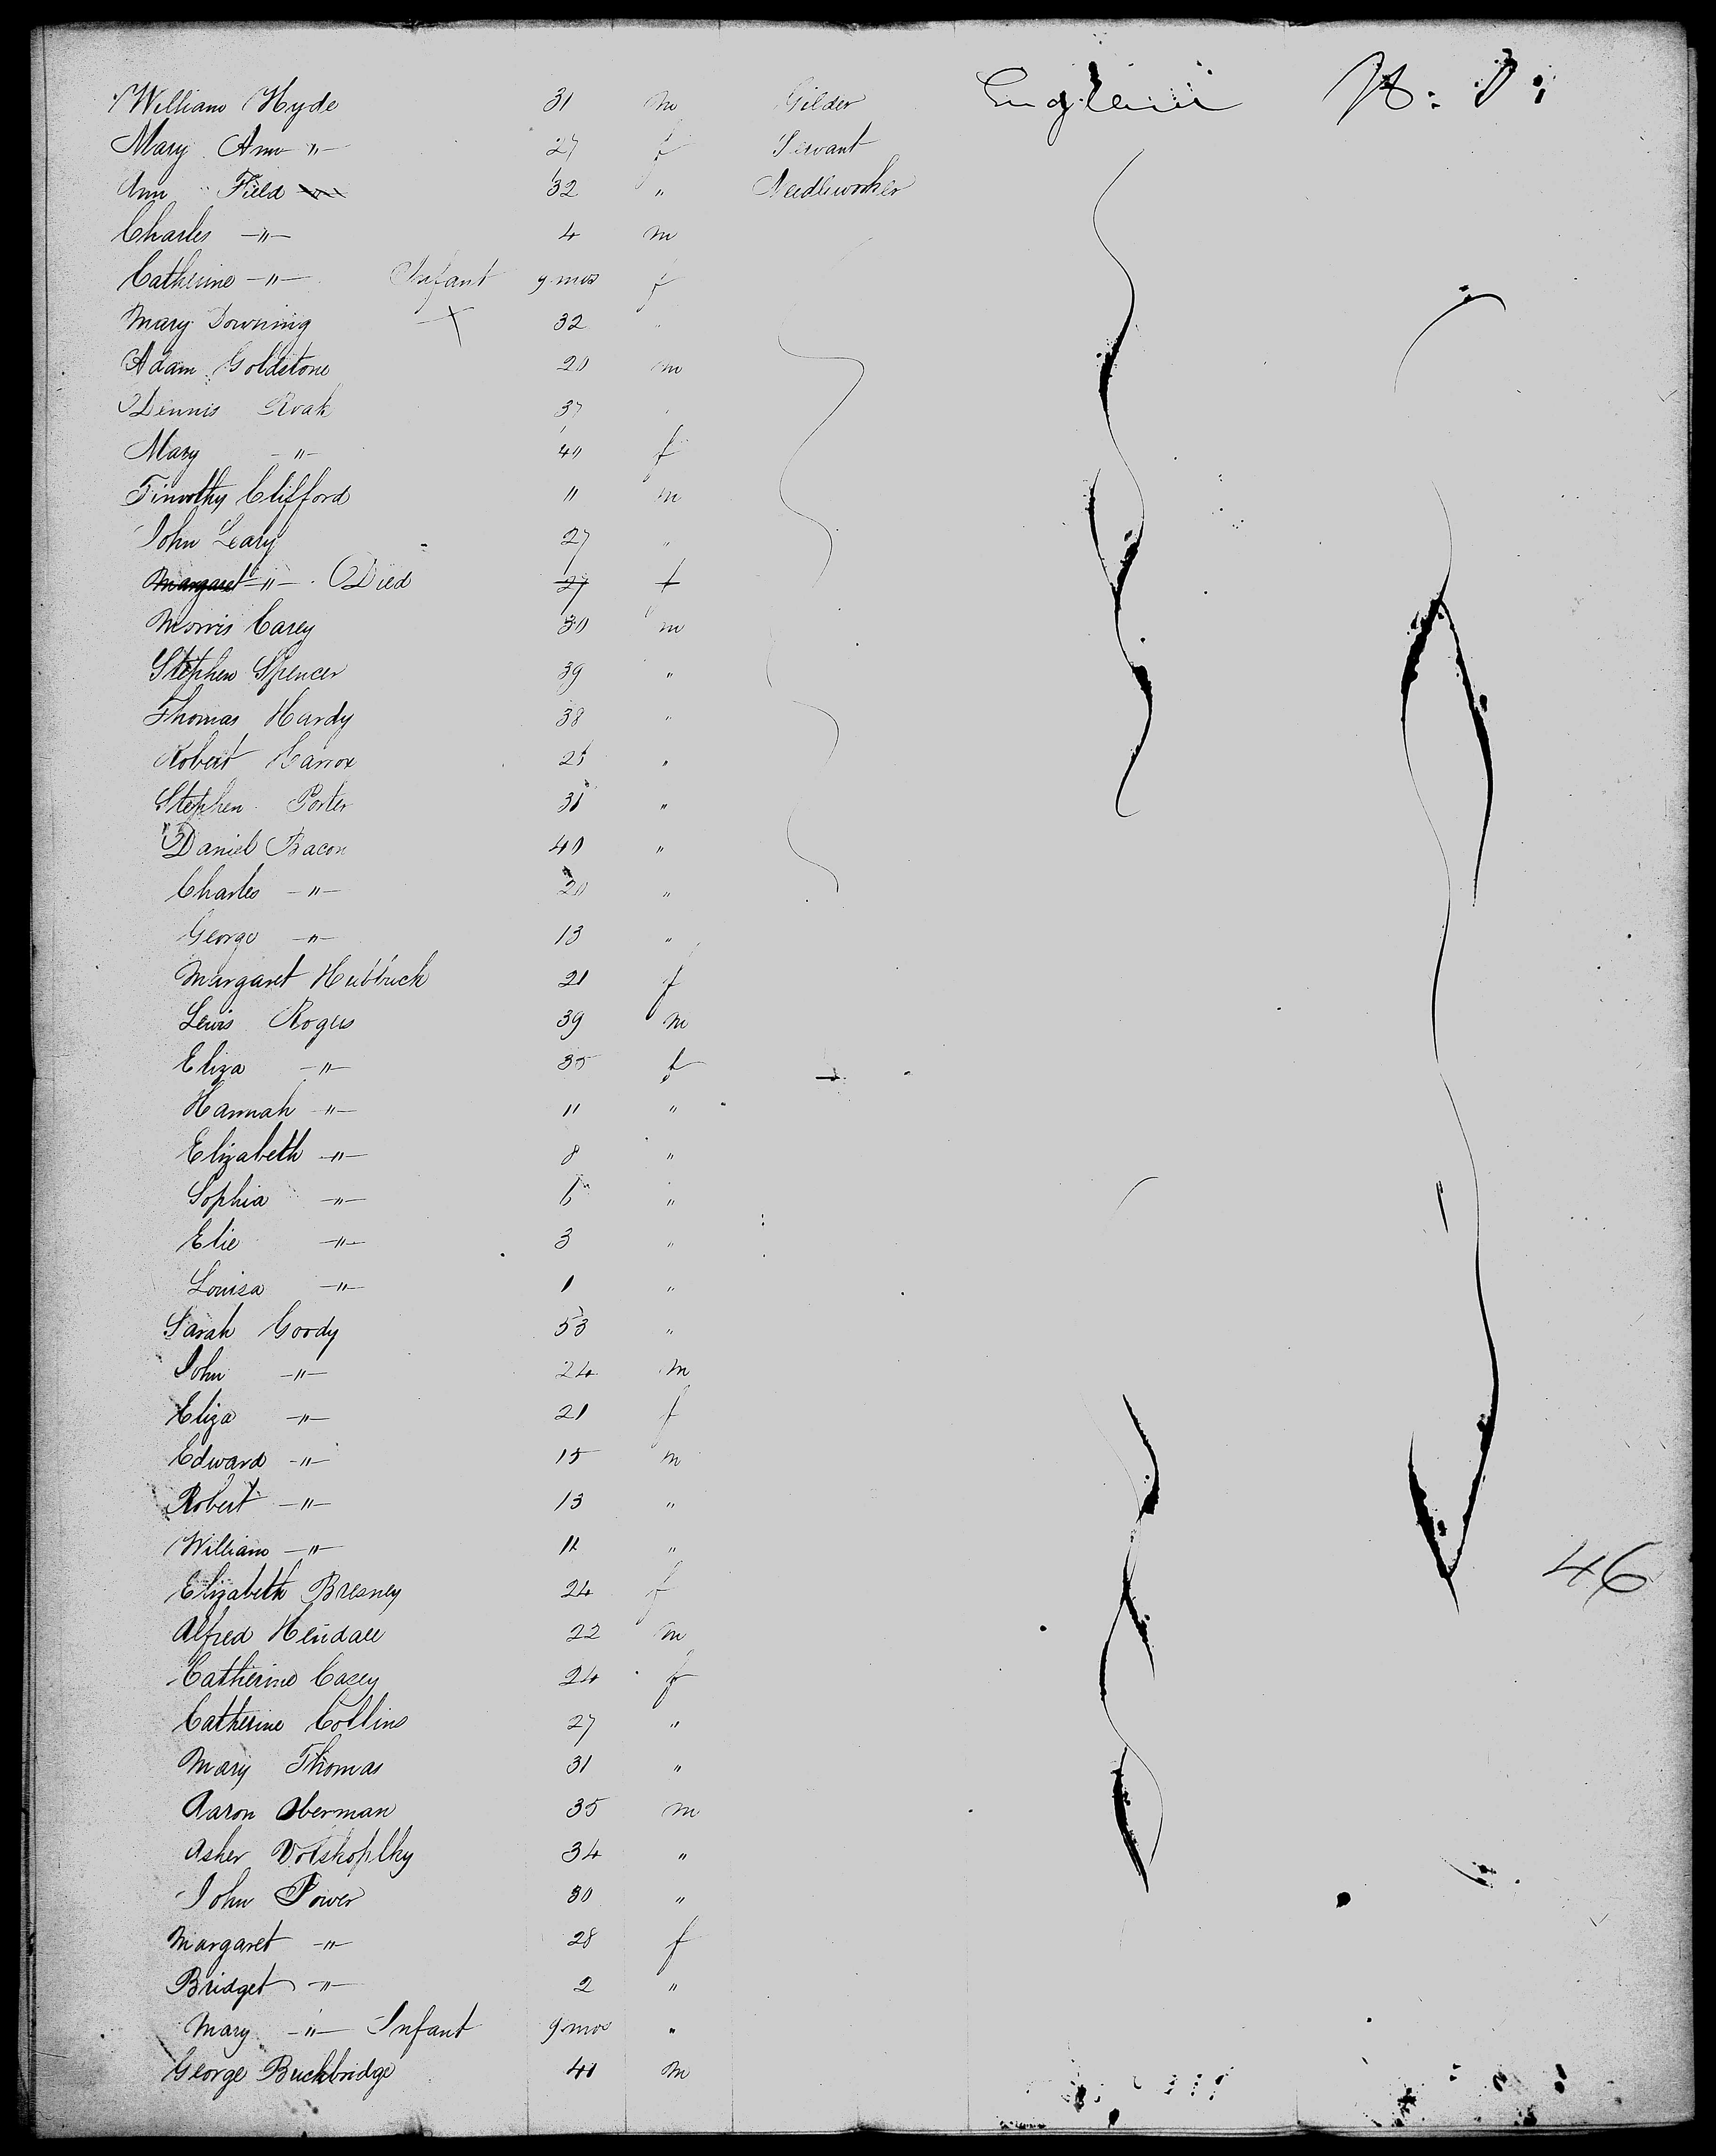 William Hyde 31 m Gilder England N: Y:
Mary Ann -"- 27 f Servant
Ann Field 32 " Needleworker
Charles -"- 4 m
Catherine -"- Infant 9 mos f
Mary Downing X 32 "
Adam Goldstone 20 m
Dennis Roak 37 "
Mary -"- 40 f
Timothy Clifford " m
John Leary 27 "
Margaret -"- Died 27 f
Morris Carey 30 m
Stephen Spencer 39 "
Thomas Hardy 38 "
Robert "
Stephen Porter 31 "
Daniel Bacon 40 "
Charles -"- 20 "
George -"- 13 "
Margaret Hubbuck 21 f
Lewis Rogers 39 m
Eliza -"- 35 f
Hannah -"- 11 "
Elizabeth -"- 8 "
Sophia -"- 6 "
Elie -"- 3 "
Louisa -"- 1 "
Sarah Goody 53 "
John -"- 24 m
Eliza -"- 21 f
Edward -"- 15 m
Robert -"- 13 "
William -"- 11 "
46
Elizabeth Bresney 24 f
Alfred 22 m
Catherine Casey 24 f
Catherine Collins 27 "
Mary Thomas 31 "
Aaron Oberman 35 m
Asher 34 "
John Power 30 "
Margaret -"- 28 f
Bridget -"- 2 "
Mary -"- Infant 9 mos "
George Buckbridge 40 m